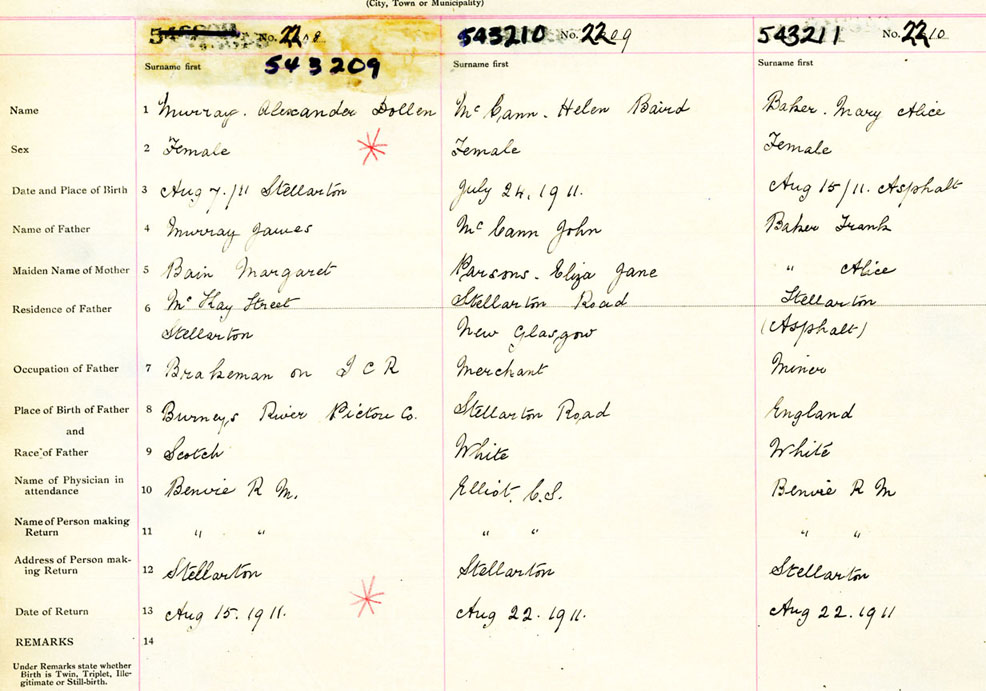 (City, Town or Municipality)
No. 2208 543210 No. 2209 543211 No. 2210
Surname first 543209 Surname first Surname first
Name 1 Murray. Alexander Dollen McCann. Helen Baird Baker. Mary Alice
Sex 2 Female Female Female
Date and Place of Birth 3 Aug 7/11 Stellarton July 24, 1911. Aug 15/11. Asphalt
Name of Father 4 Murray James McCann John Baker Frank
Maiden Name of Mother 5 Bain Margaret Parsons. Eliza Jane " Alice
Residence of Father 6 McKay Street Stellarton Road Stellarton
Stellarton New Glasgow (Asphalt)
Occupation of Father 7 Brakeman on I C R Merchant Miner
Place of Birth of Father 8 Burneys River Pictou Co. Stellarton Road England
and
Race of Father 9 Scotch White White
Name of Physician in
attendance 10 Benvie R M. Elliot. C.S. Benvie R M
Name of Person making
Return 11 " " " " " "
Address of Person mak-
ing Return 12 Stellarton Stellarton Stellarton
Date of Return 13 Aug 15. 1911. Aug 22. 1911. Aug 22. 1911
REMARKS 14
Under Remarks state whether
Birth is Twin, Triplet, Ille-
gitimate or Still-birth.